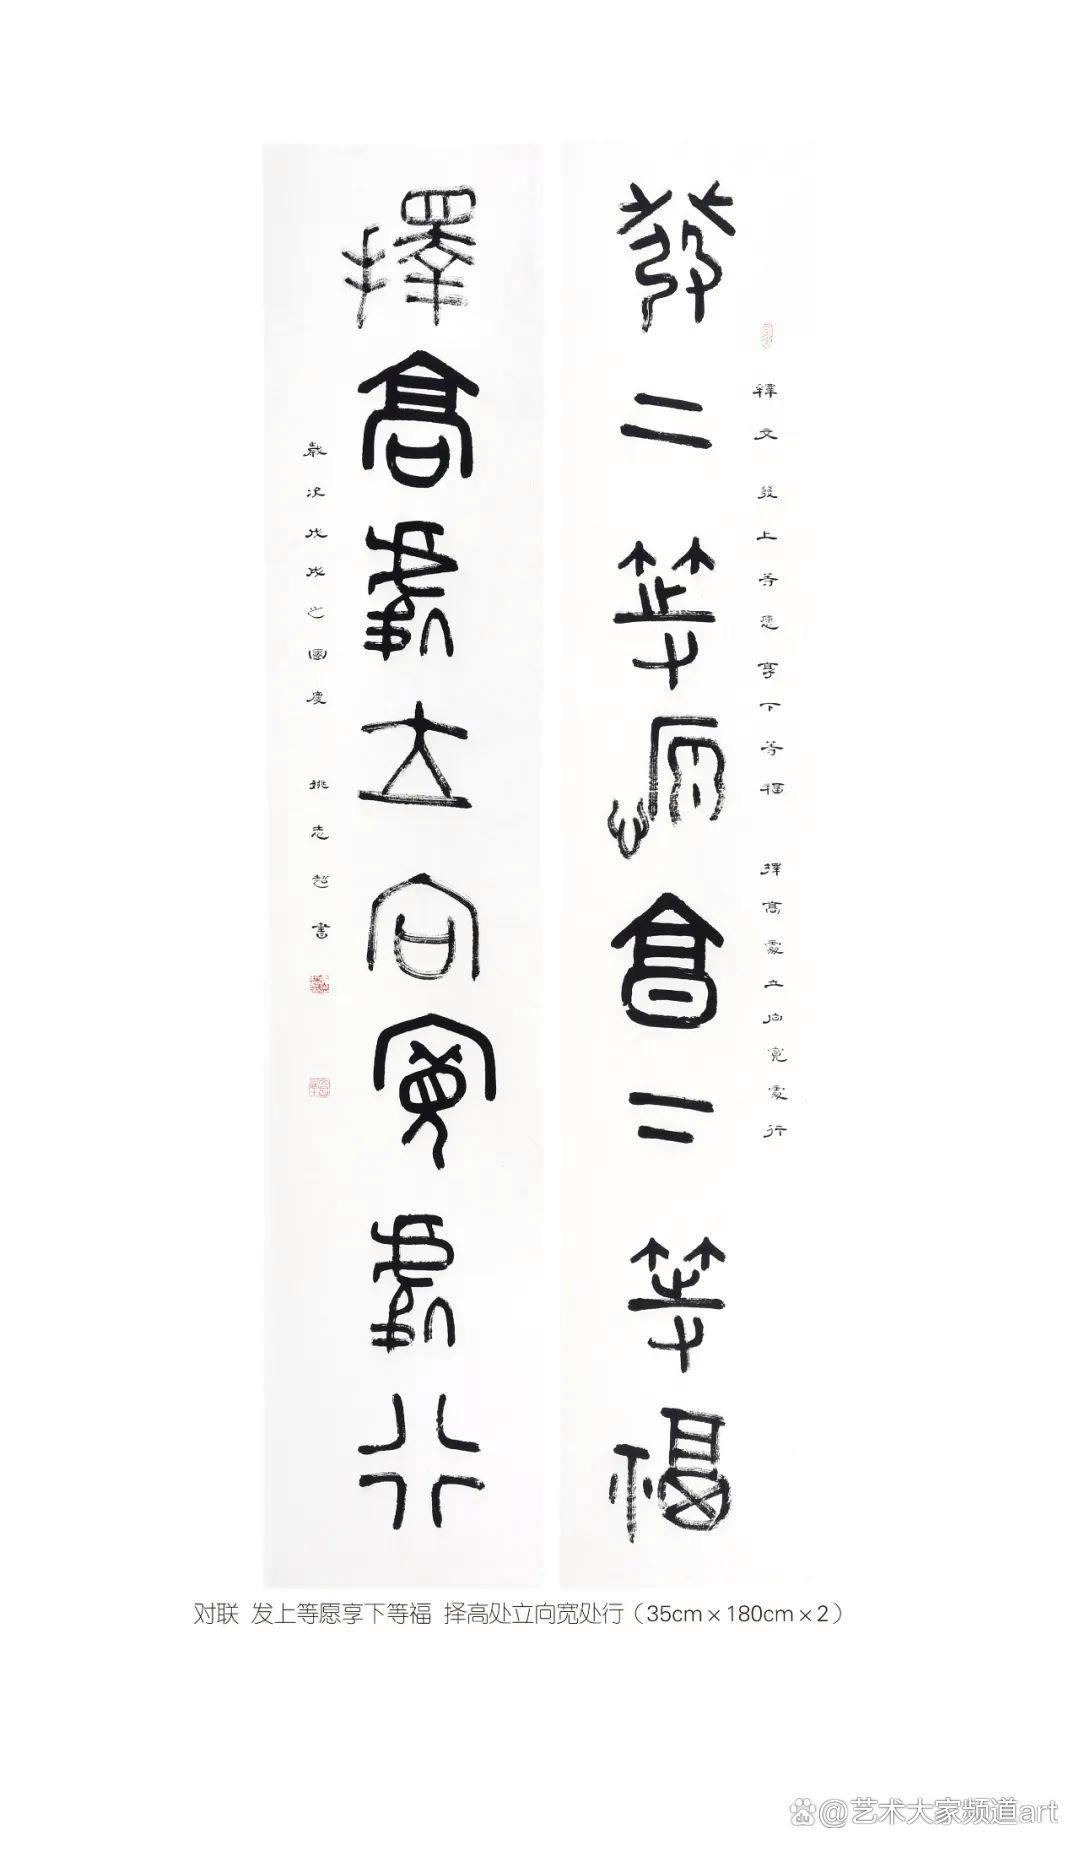 發二等愿享二等福
釋文 發上等愿享下等福 擇高處立向寬處行
擇高處立向寬處行
歲次戊戌之國慶 姚志超書
对联 发上等愿享下等福 择高处立向宽处行（35cm×180cm×2）
@艺术大家频道art